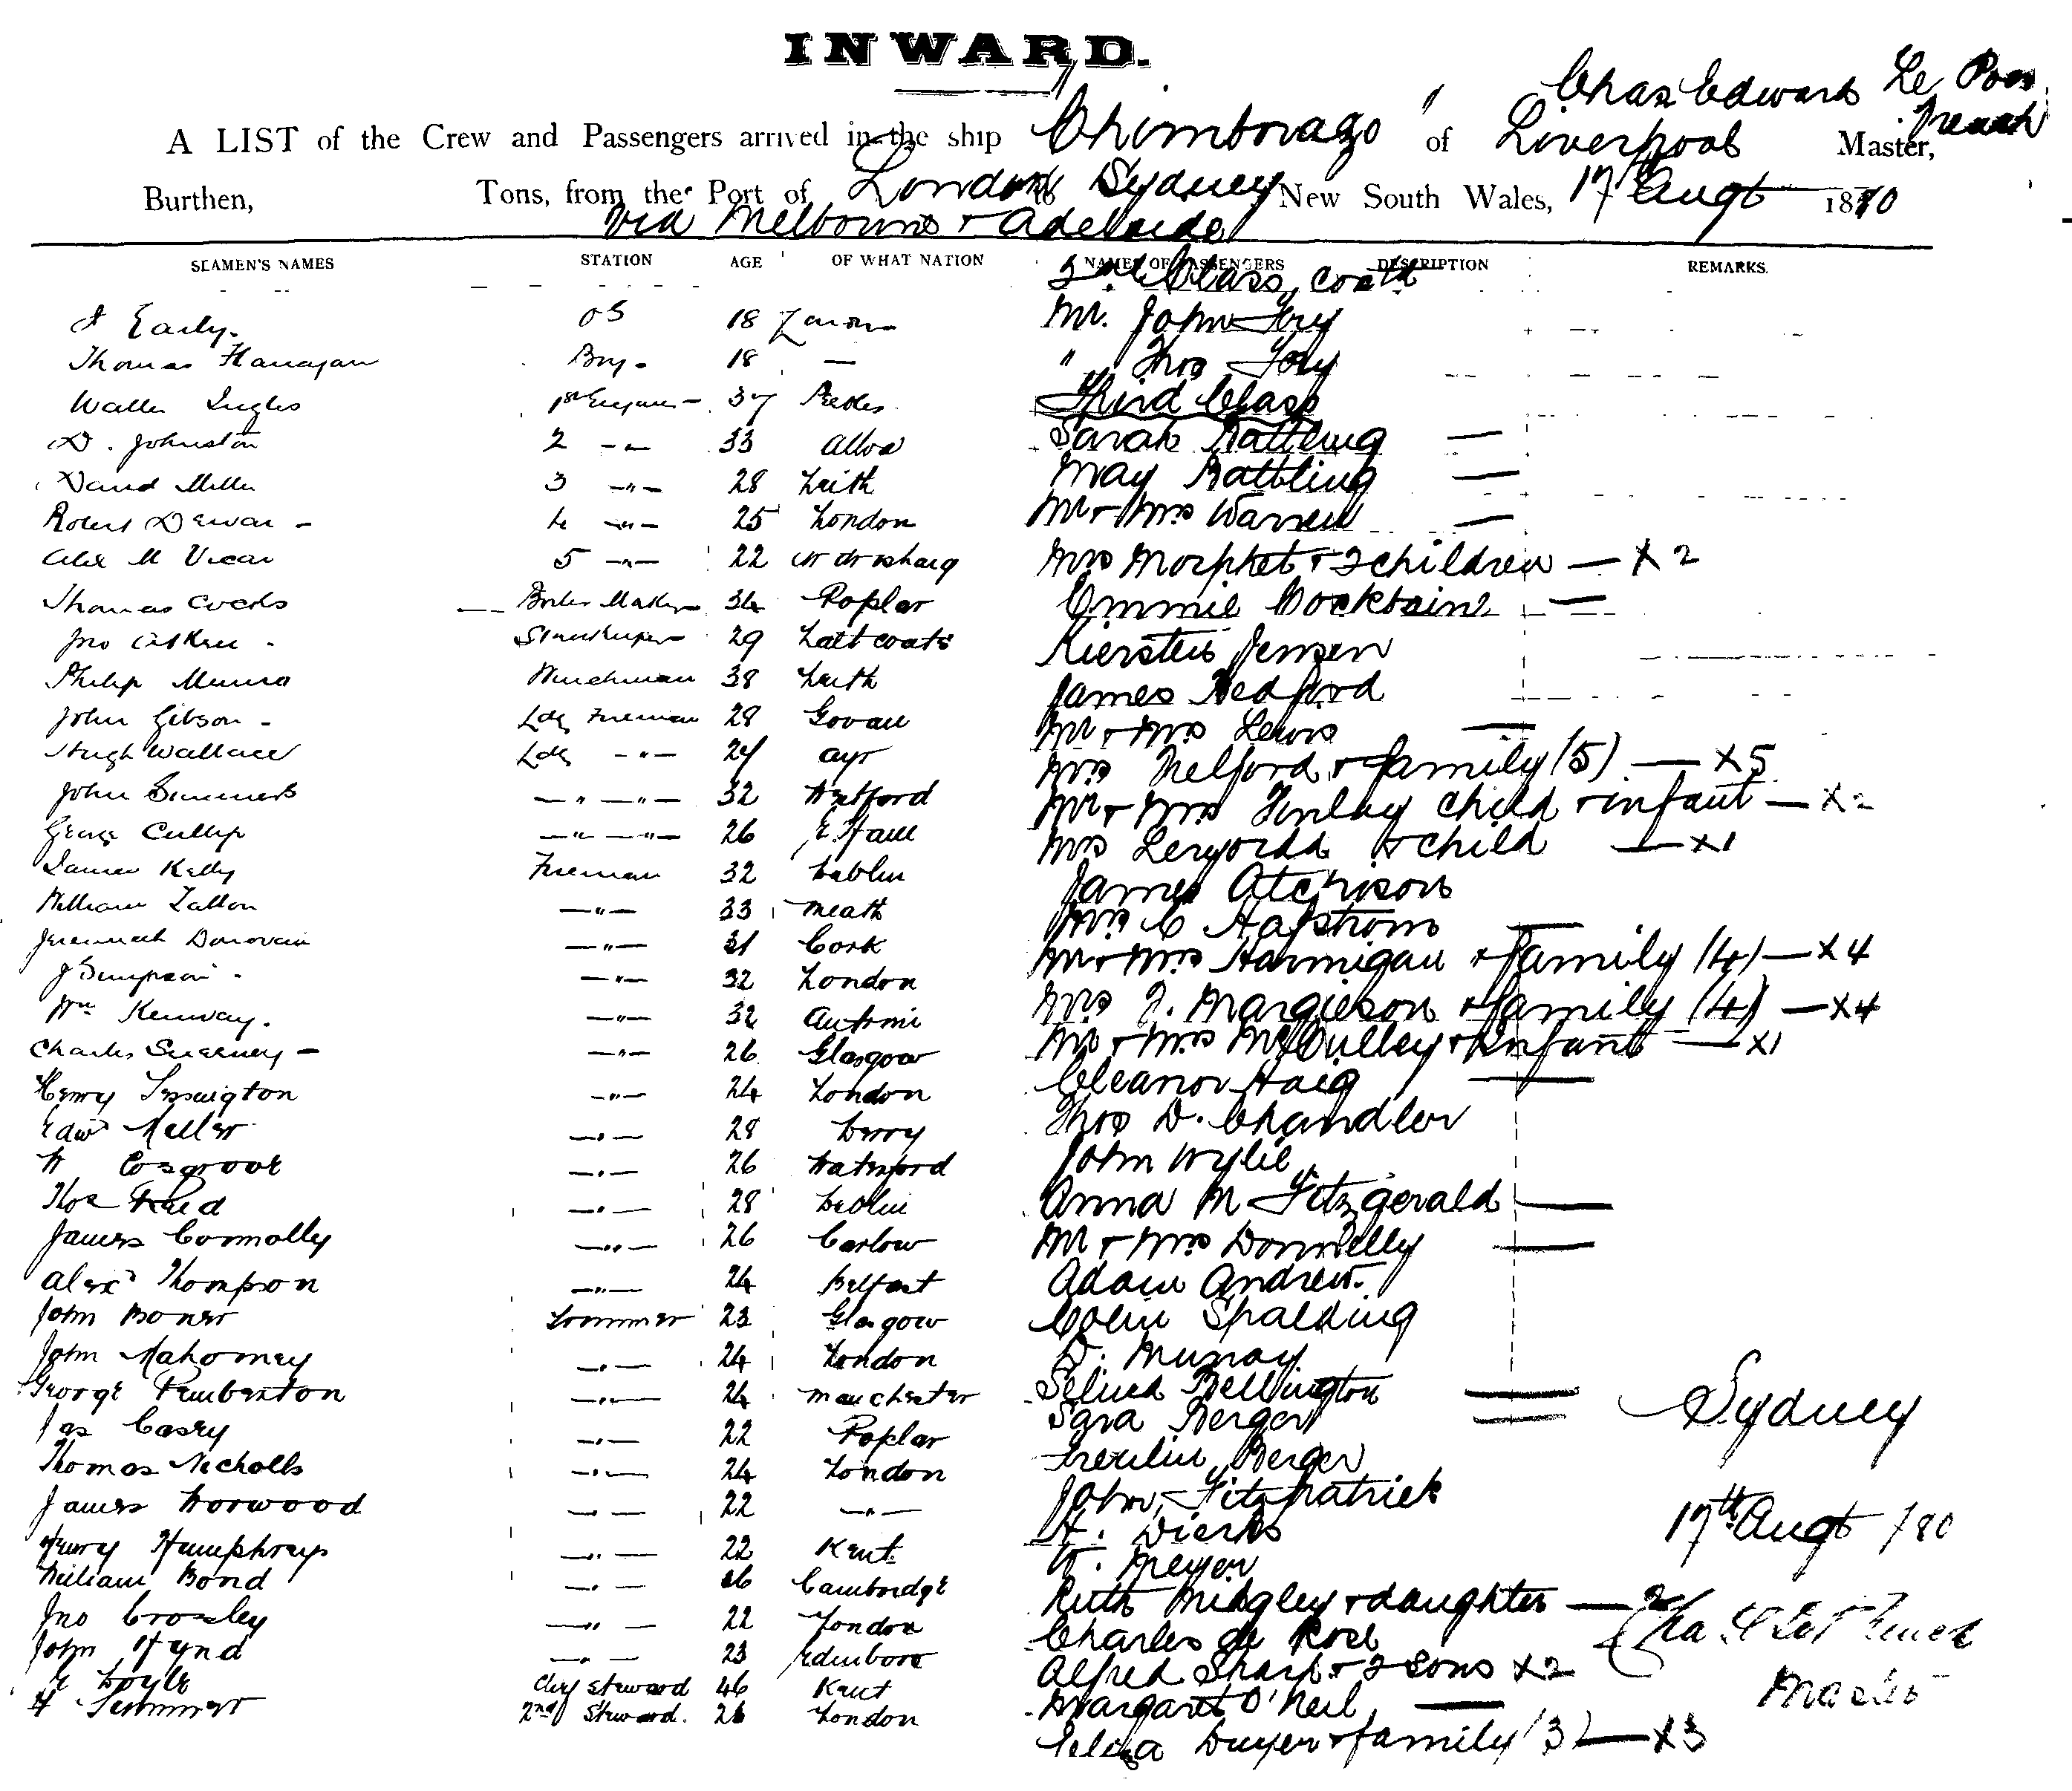 INWARD.
Chas Edward Le Poer
Trench
A LIST of the Crew and Passengers arrived in the ship "Chimborazo" of Liverpool Master,
Burthen, Tons, from the Port of London to Sydney New South Wales, 17 Augt 1880
via Melbourne & Adelaide
SEAMEN'S NAMES STATION AGE OF WHAT NATION NAMES OF PASSENGERS DESCRIPTION REMARKS.
2nd Class, contd
J Early. OS 18 London Mr. John Fory
Thomas Flanagan Boy. 18 — " Thos Fory
Walter Ingles 1st Engineer 37 Peebles Third Class
D. Johnston 2 -"- 33 Alloa Sarah Rattling —
David Miller 3 -"- 28 Leith May Rattling —
Robert Dewar - 4 -"- 25 London Mr & Mrs Warren —
Alex M Vicar 5 -"- 22 Mrs Morphet & 2 children — X 2
Thomas Boiler Maker 34 Poplar Emmie
Jno Aitken - Storekeeper 29 Saltcoats Kiersten Jensen
Philip Munro Winchman 38 Leith James Redford
John Gibson - Ldg Fireman 28 Govan Mr & Mrs Lewis —
Hugh Wallace Ldg -"- 24 Ayr Mrs Telford & family (5) — X5
John Summers -"- -"- 32 Watford Mr & Mrs Finlay child & infant — X2
George Cullip -"- -"- 26 E. Ham Mrs & child — X1
James Kelly Fireman 32 Dublin James Atchison
William Tallon -"- 33 Meath Mrs C Hafstrom —
Jeremiah Donovan -"- 31 Cork Mr & Mrs Hannigan & family (4) — X4
J Simpson - -"- 32 London Mrs J. Margieson & family (4) — X4
Wm Kenway. -"- 32 Antrim Mr & Mrs McCulley & Infant — X1
Charles Sweeney - -"- 26 Glasgow Eleanor Haig —
Henry -"- 24 London Thos D. Chandler
Edwd Meller -"- 28 Derry John Wylie
W Cosgrove -"- 26 Waterford Anna M Fitzgerald —
Thos Reid -"- 28 Dublin Mr & Mrs Donnelly —
James Connolly -"- 26 Carlow Adam Andrew.
Alexr Thompson -"- 24 Belfast Colin Spalding
John Boner Trimmer 23 Glasgow D. Murray
John Mahoney -"- 24 London Selina Bellington —
George Pemberton -"- 24 Manchester Sara Berger — Sydney
Jas Casey -"- 22 Poplar Berger
Thomas Nicholls -"- 24 London John Fitzpatrick
James Norwood -"- 22 -"- H. Dierks 17th Augt /80
Henry Humphreys -"- 22 Kent. W. Meyer
William Bond -"- 26 Cambridge Ruth Midgley & daughter — 2
Jno Crossley -"- 22 London Charles de Rose
John Hynd -"- 23 Edinboro Alfred Sharp & 2 sons X2
Doyle Chief Steward 46 Kent Margaret O'Neil, — Master
2nd Steward. 26 London Eliza Dwyer & family (3) — X3